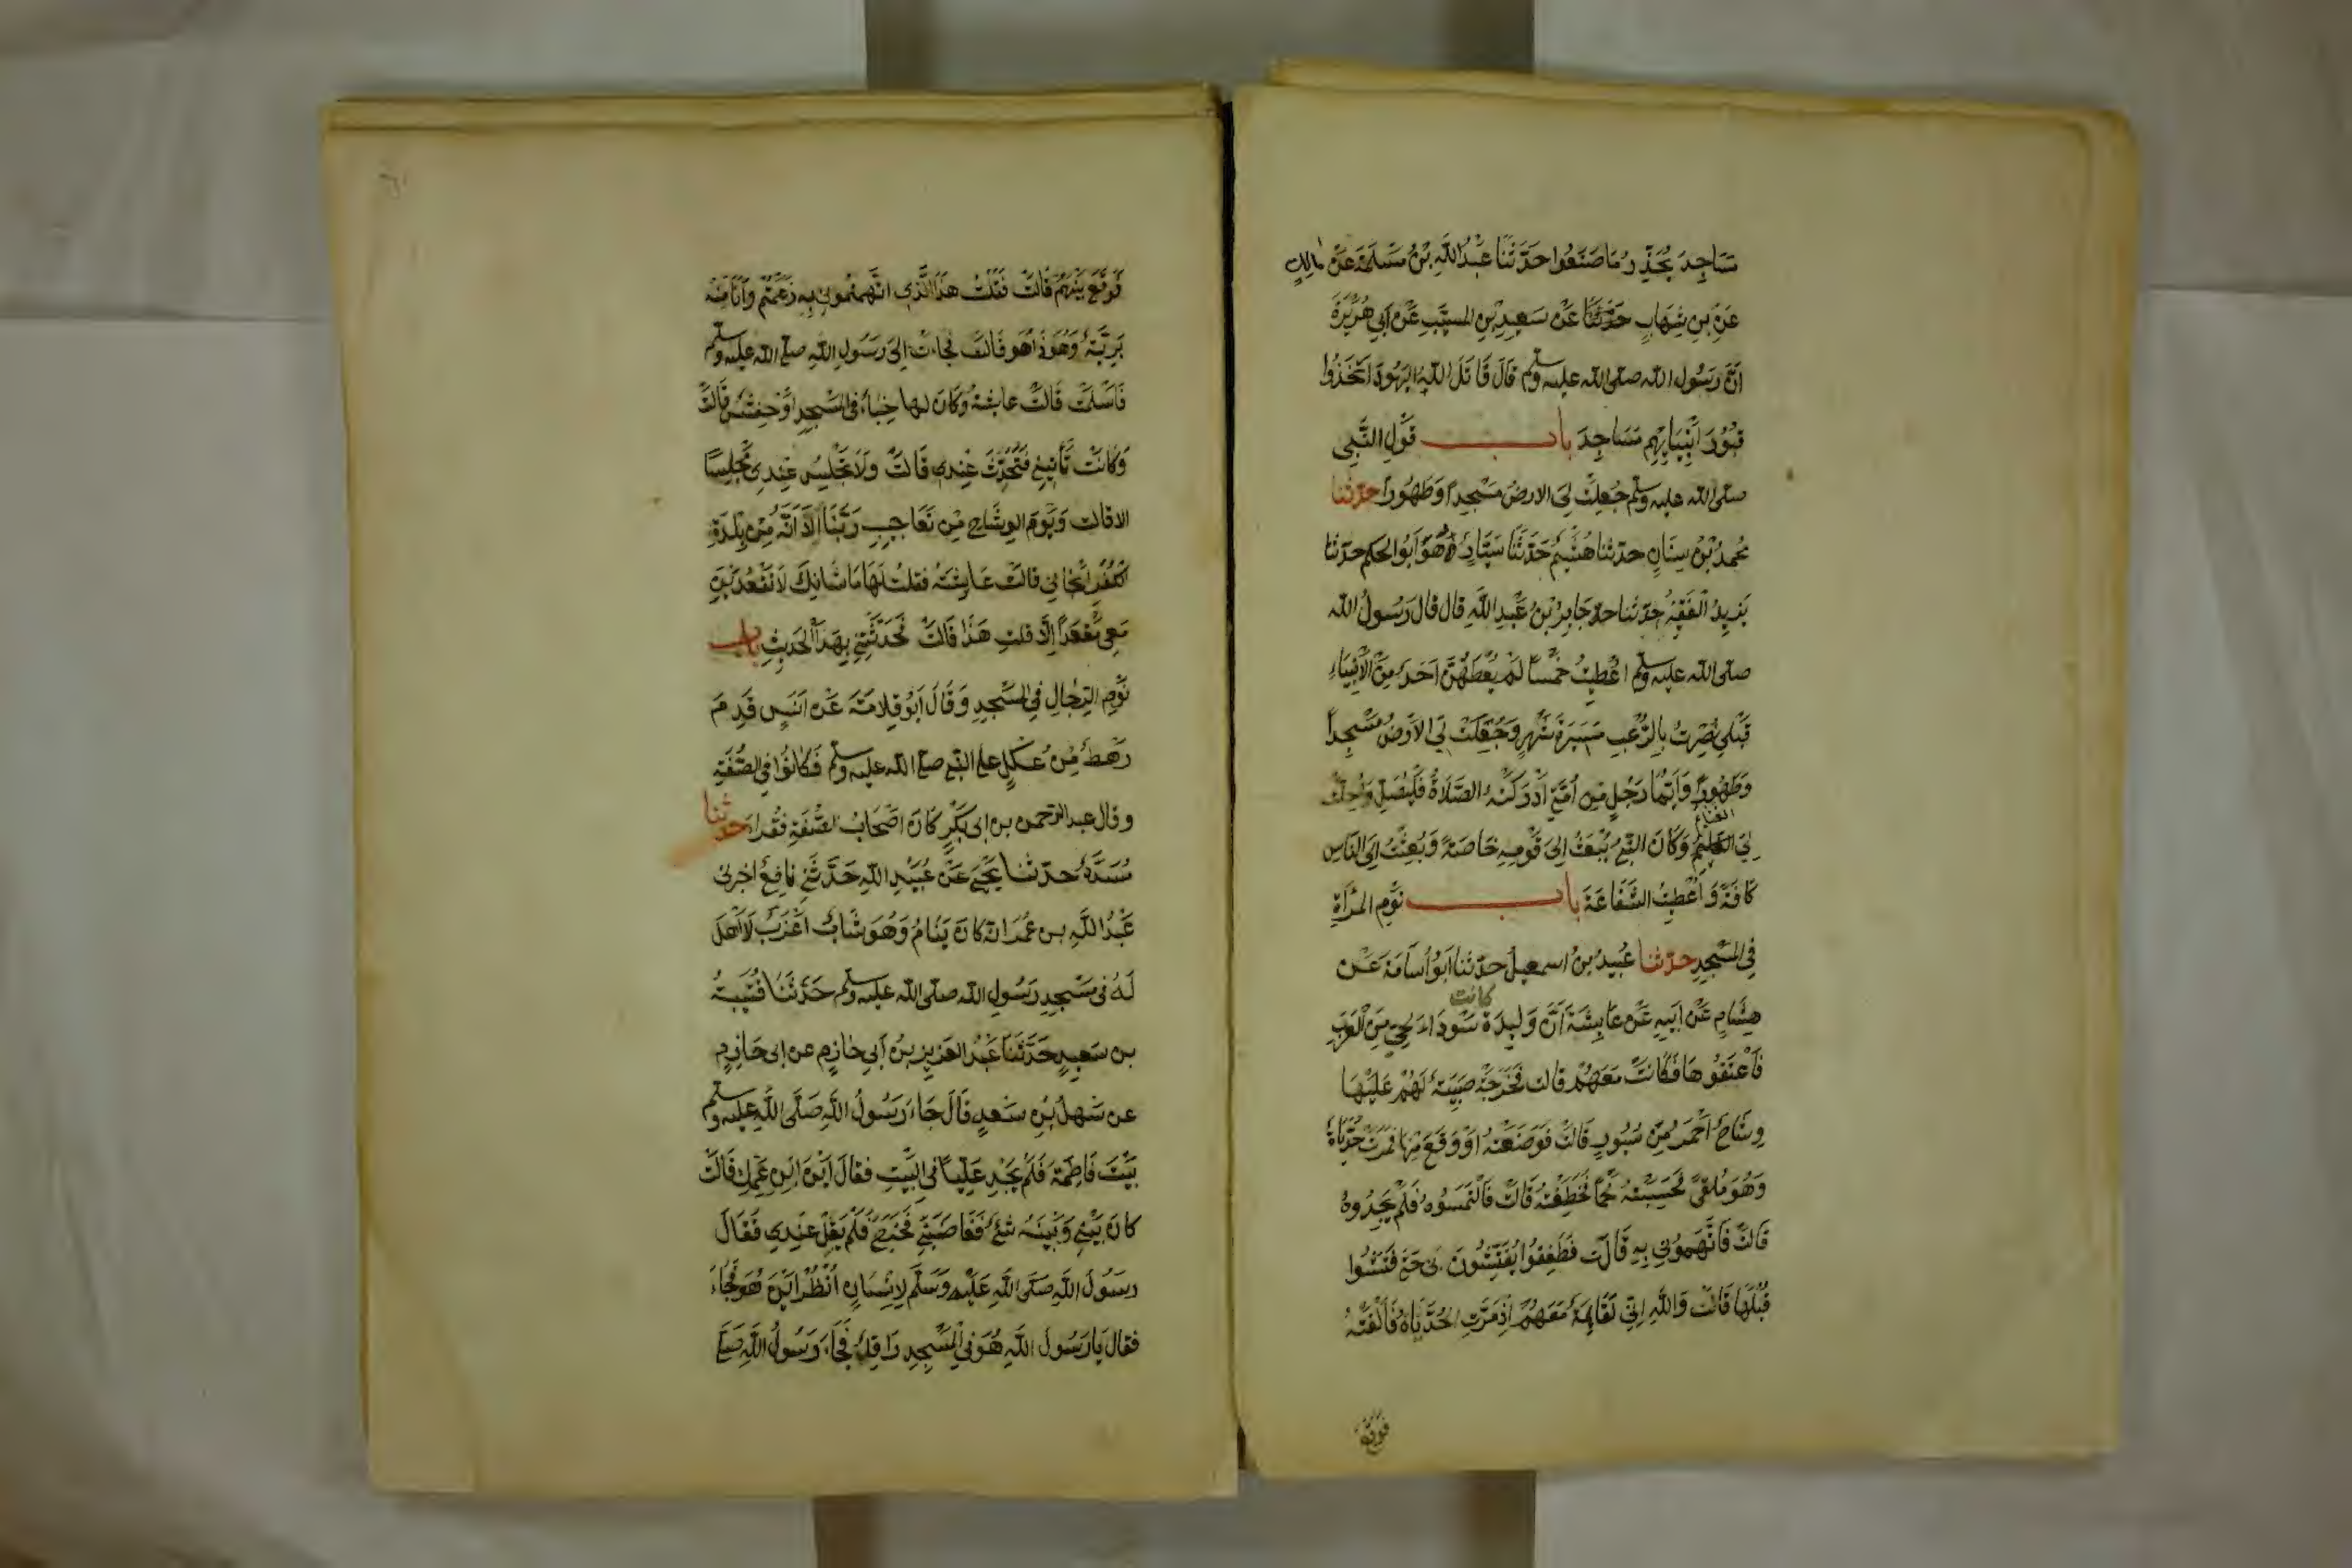 مَسَاجِدَ يُحَذِّرُ مَا صَنَعُوا حَدَّثَنَا عَبْدُ اللَّهِ بْنُ مَسْلَمَةَ عَنْ مالك
عَنِ بنِ شِهَابٍ عَنْ سَعِيدِ بْنِ المسيّبِ عَنْ أَبِي هُرَيْرَةَ
أَنَّ رَسُولَ الله صلّى الله عليه وسلّم قَالَ قَاتَلَ اللهُ اليَهُودَ اتَّخَذُوا
قُبُورَ أَنْبِيَائِهِم مَسَاجِدَ باب قَوْلِ النَّبِي
صلّى الله عليه وسلّم جُعِلَتْ لِيَ الارضُ مَسْجِداً وَطَهُوراً حدّثنا
مُحمدُ بْنُ سِنَانٍ حدّثنا هُشَيْمٌ حَدَّثَنَا سَيَّارٌ هُوَ أَبُو الحكم حدّثنا
يَزِيدُ الْفَقِيرُ حدّثنا جَابِرُ بْنُ عَبْدِ اللَّهِ قال قال رَسُولُ الله
صلّى الله عليه وسلّم أُعْطِيتُ خَمْساً لَمْ يُعْطَهُنَّ أَحَدٌ مِنَ الْأَنْبِيَاءِ
قَبْلِي نُصِرْتُ بِالرُّعْبِ مَسِيرَةَ شَهْرٍ وَجُعِلَتْ لِيَ الأَرْضُ مَسْجِداً
وَطَهُوراً وَأَيُّمَا رَجُلٍ مِنْ أُمَّتِي أَدْرَكَتْهُ الصَّلَاةُ فَلْيُصَلِّ وَأُحِلَّتْ
لِيَ الغنائم وَكَانَ النَّبِيُّ يُبْعَثُ إِلَى قَوْمِهِ خَاصَةً وَبُعِثْتُ إِلَى النَّاسِ
كَافَةً وَأُعْطِيتُ الشَّفَاعَةَ باب نَوْمِ المرْأَةِ
فِي المَسْجِدِ حدّثنا عُبَيْدُ بْنُ اسمعيل حدّثنا أَبُو أُسَامَةَ عَنْ
هِشَامٍ عَنْ أَبِيهِ عَنْ عَائِشَةَ أَنَّ وَلِيدَةً كانت سَوْدَاءَ لِحَيٍّ مِنَ الْعَرَبِ
فَأَعْتَقُوهَا فَكَانَتْ مَعَهُمْ قالت فَخَرَجَتْ صَبِيَّةٌ لَهُمْ عَلَيْهَا
وِشَاحٌ أَحْمَرُ مِنْ سُيُورٍ قَالَتْ فَوَضَعَتْهُ أَوْ وَقَعَ مِنْهَا فَمَرَّتْ حُدَيَّاةٌ
وَهُوَ مُلْقىً فَحَسِبَتْهُ لَحْماً فَخَطِفَتْهُ قَالَتْ فَالْتَمَسُوهُ فَلَمْ يَجِدُوهُ
قَالَتْ فَاتَّهَمُونِي بِهِ قَالَت فَطَفِقُوا يُفَتِّشُونَ نِي حَتَّى فَتَّشُوا
قُبُلَهَا قَالَتْ وَاللَّهِ إِنِّي لَقَائِمَةٌ مَعَهُمْ إِذْ مَرَّتِ الحُدَيَّاةُ فَأَلْقَتْهُ
فَوَقَعَ
فَوَقَعَ بَيْنَهُمْ قَالَتْ فَقُلْتُ هَذَا الَّذِي اتَّهَمْتُمُونِي بِهِ زَعَمْتُمْ وَأَنَا مِنْهُ
بَرِيَّةٌ وَهُوَ ذَا هُو قَالَتْ فجاءت إِلَى رَسُولِ اللهِ صلّى الله عليه وسلّم
فَأَسْلَمَتْ قَالَتْ عائشةُ وَكَانَ لها خِبَاءٌ فِي المَسْجِدِ أَوْ حِفْشٌ قَالَتْ
وَكَانَتْ تَأْتِينِي فَتَحَدَّثُ عِنْدِي قَالَتْ وَلَا تَجْلِسُ عِنْدِي مَجْلِسًا
الا قالت وَيَوْمَ الوِشَاحِ مِنْ تَعَاجِيبِ رَبِّنَا أَلَا أَنَّهُ مِنْ بَلْدَةِ
الكُفْرِ أَنْجَانِي قالت عَائِشَةُ فقلت لَهَا مَا شَانُكِ لَا تَقْعُدِينَ
مَعِي مَقْعَداً إِلَّا قلتِ هَذَا قَالَتْ فَحَدَّثَتْنِي بِهَذَا الْحَدِيثِ باب
نَوْمِ الرِّجَالِ فِي المَسْجِدِ وَقَالَ أَبُو قِلَابَةَ عَنْ أَنَسٍ قَدِمَ
رَهْطٌ مِنْ عُكْلٍ على النبي صلى الله عليه وسلّم فَكَانُوا فِي الصُّفَّةِ
وقال عبد الرّحمن بن ابى بَكْرٍ كَانَ أَصْحَابُ الصُّفَّةِ فُقَراءَ حدّثنا
مُسَدَّدٌ حدّثنا يَحْيَى عَنْ عُبَيْدِ اللهِ حَدَّثَنِي نَافِعٌ اخبرنى
عَبْدُ اللَّهِ بن عُمَرَ انّه كَانَ يَنَامُ وَهُوَ شَابٌّ أَعْزَبُ لَا أَهْلَ
لَهُ في مَسْجِدِ رَسُولِ الله صلّى الله عليه وسلّم حَدَّثَنَا قُتَيْبَةُ
بن سَعِيدٍ حَدَّثَنَا عَبْدُ العَزِيزِ بنُ أَبِي حَازِمٍ عن ابى حَازِمٍ
عن سَهْلِ بْنِ سَعْدٍ قَالَ جَاءَ رَسُولُ اللَّهِ صَلَّى اللَّهُ عليه وسلّم
بَيْتَ فَاطِمَةَ فَلَمْ يَجِدْ عَلِيّاً فِي البَيْتِ فقال أَيْنَ ابْنُ عَمِّكِ قَالَتْ
كَانَ بَيْنِي وَبَيْنَهُ شَيْءٌ فَغَاضَبَنِي فَخَرَجَ فَلَمْ يَقِلْ عِنْدِي فَقَالَ
رَسُولُ اللَّهِ صَلَّى اللَّهُ عَلَيْهِ وَسَلَّمَ لِإِنْسَانٍ انْظُرْ أَيْنَ هُوَ فَجَاءَ
فقال يَا رَسُولَ اللَّهِ هُوَ فِي الْمَسْجِدِ رَاقِدٌ فَجَاءَ رَسُولُ اللَّهِ صَلَّى